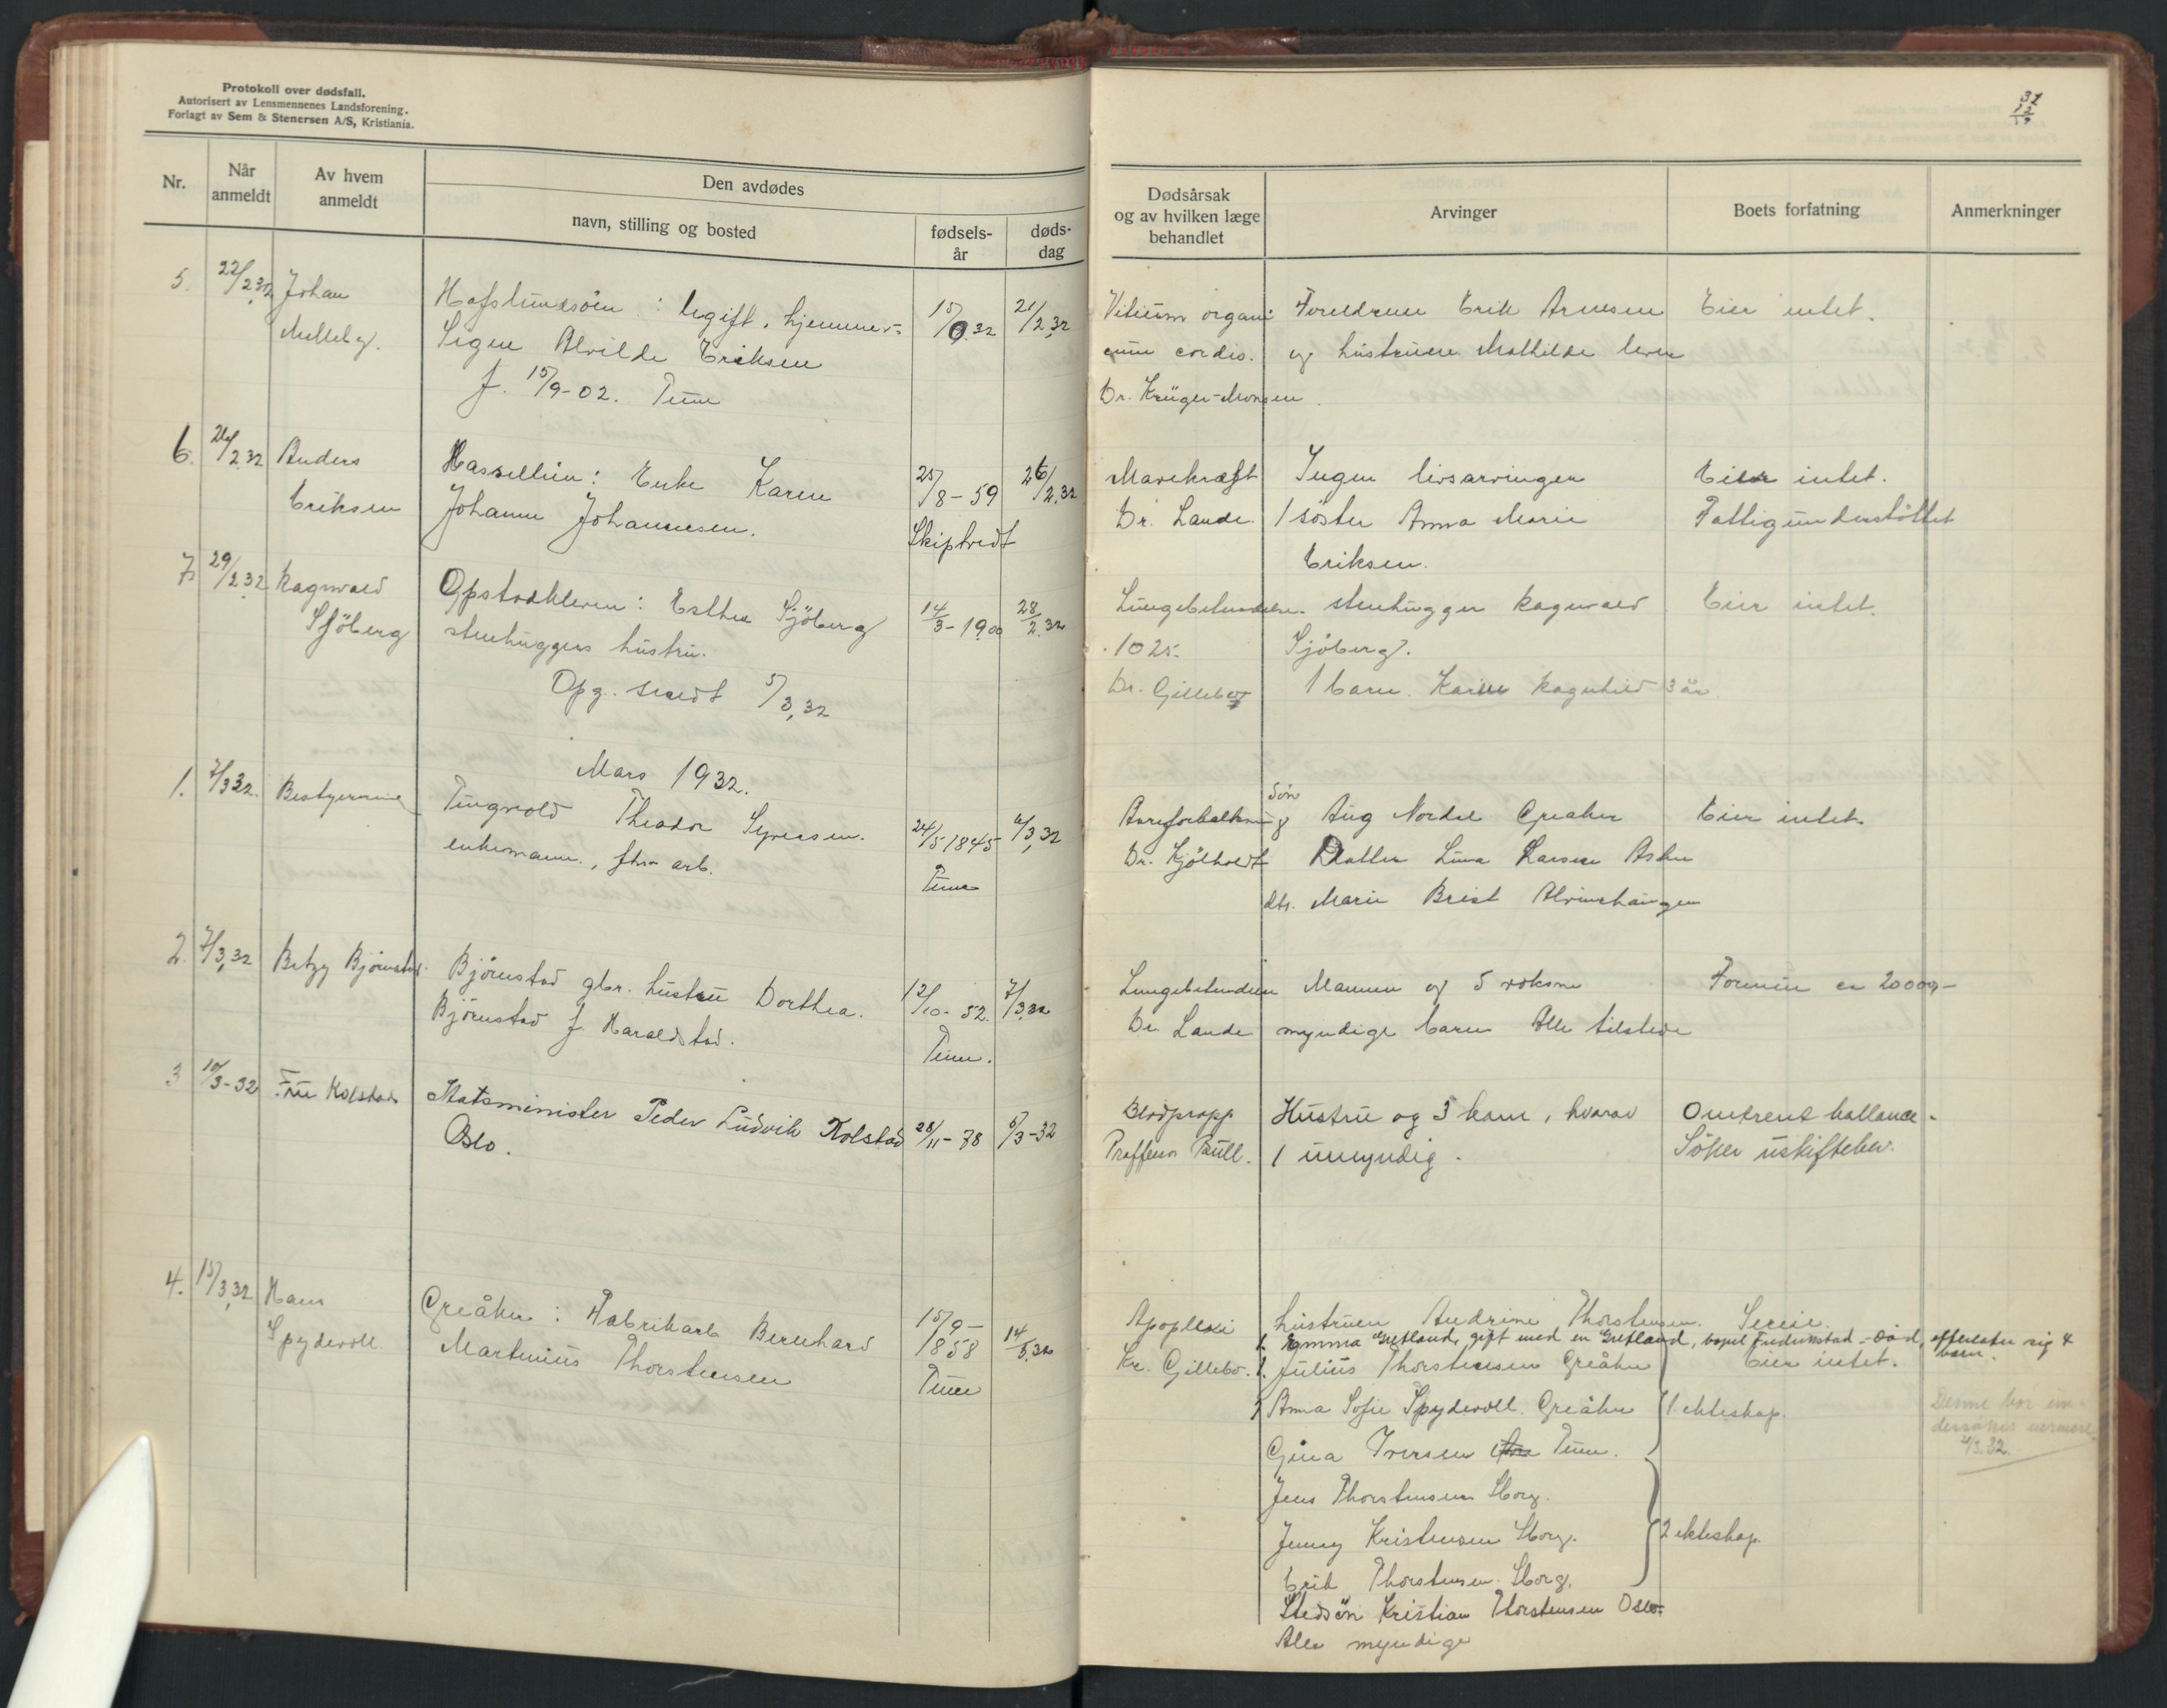 Protokoll over dødsfall.
Autorisert av Lensmennenes Landsforening.
Forlagt av Sem & Stenersen A/S, Kristiania.
Nr.
Når anmeldt
Av hvem anmeldt
Den avdødes
navn, stilling og bosted
fødsels-år
døds-dag
5. 22/2 32 Johan
Melleby.
Hafslundsøen : Ugift, hjemmev=
Signe Alvilde Eriksen
f. 15/9-02. Tune
15/9 32
21/2 32
6. 26/2 32 Anders
Eriksen
Hassellun: Enke Karen
Johanne Johannesen.
25/8-59
Skiptvedt
26/2 32
7. 29/2 32 Ragnvald
Sjöberg
Opstadkleven: Esther Sjöberg
stenhuggers hustru.
Opg. sendt 5/3, 32
14/3-1900
28/2 32
Mars 1932.
1. 7/3 32. Bestyrerinne
Tingvold Theodor Syversen.
enkemann, fhv arb.
24/5 1845
Tune
6/3, 32
2. 7/3, 32 Betzy Bjørnstad.
Bjørnstad gbr. hustru Dorthea.
Bjørnstad f. Haraldstad.
12/10-52.
Tune.
7/3 32
3 10/3-32 Fru Kolstad
Statsminister Peder Ludvik Kolstad
Oslo.
28/11-78
5/3-32
4. 15/3, 32 Hans
Spydevoll.
Greåker : Fabrikarb Bernhard
Martinius Thorstensen
15/9-
1858
Tune
14/3 32
31
Dødsårsak
og av hvilken læge
behandlet
Arvinger
Boets forfatning
Anmerkninger
Vitium organi Foreldrene Erik Arnesen Eier intet.
cum cordis. og hustruen Mathilde lever
Dr. Krüger-Monsen.
Mavekræft Ingen livsarvinger Eier intet.
Dr. Lande. 1 søster Anna Marie Fattigunderstøttet
Eriksen.
Lungebetendelse. stenhugger Ragnvald Eier intet.
1025. Sjöberg.
Dr. Gillebo 1 barn. Karin Ragnhild 3 år.
Søn
Areforkalkning Aug Nordal Greaker Eier intet.
Dr. Kjølhvedt Datter Lina Larsen Asker
dtr. Marie Brist Alvimhaugen
Lungebetendelse Mannen og 5 voksne Formue ca 20000,-
Dr. Lande myndige barn Alle tilstede
Blodpropp Hustru og 3 barn, hvorav Omtrent ballance.
Proffessor Bull. 1 umyndig. Søker uskiftebev.
Apopleksi hustruen Andrine Thorstensen.
1. Emma Gretland, gift med en Gretland, bopel Fredrikstad - død, efterlater sig 4 barn.
Kr. Gillebo. 1. Julius Thorstensen Greåker Eier intet.
Anna Sofie Spydevoll. Greåker 1 ekteskap.
Denne bør un-
dersøkes nærmere
Gina Iversen Tune.
Jens Thorstensen Sborg.
Jenny Kristensen Sborg. 2 ekteskap.
Erik Thorstensen. Sborg.
Stedsøn Kristian Thorstensen Oslo.
Alle myndige